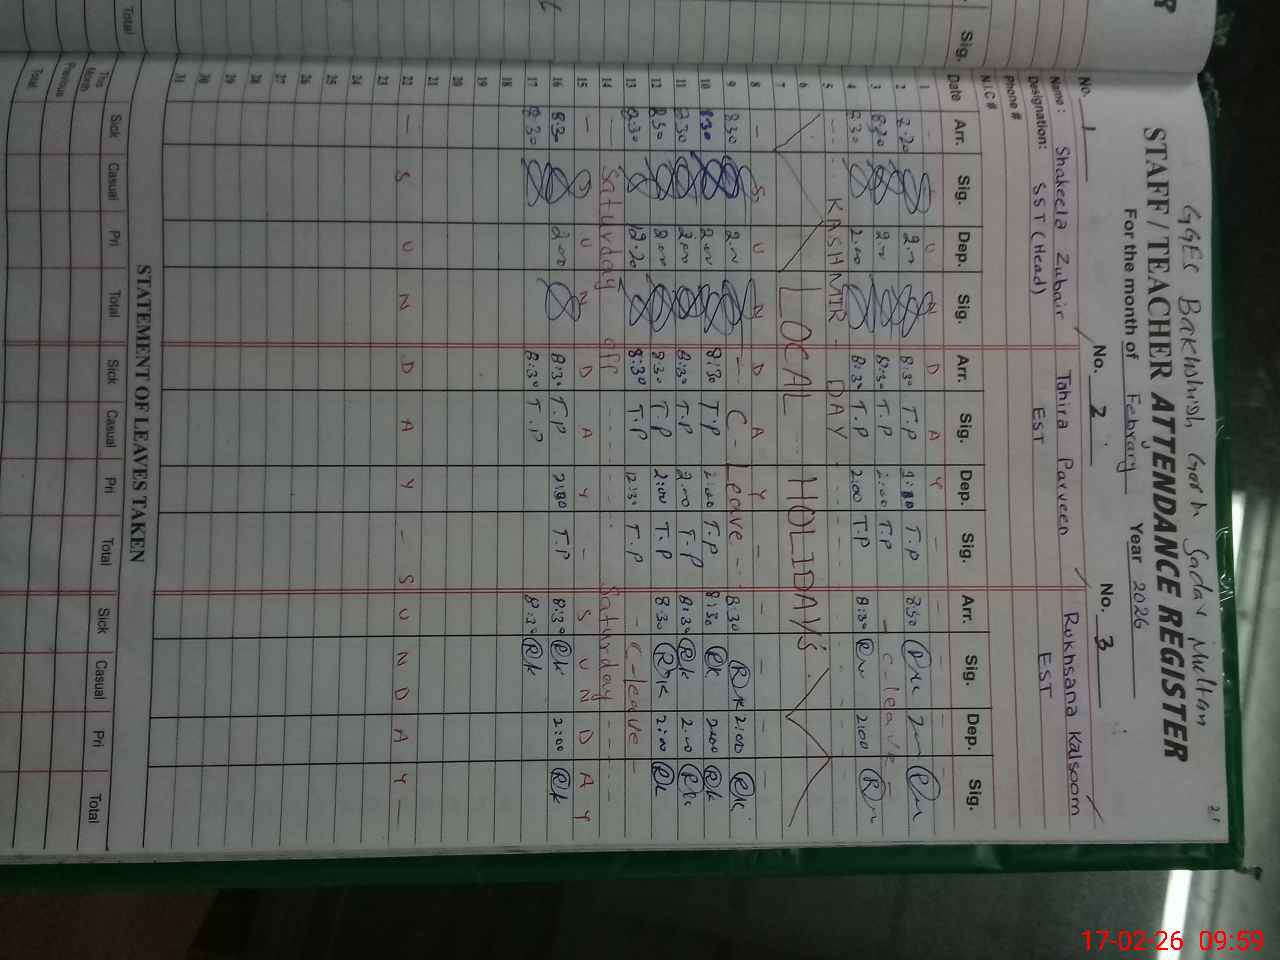 GGES Bakhshish Garh Sadar Multan
STAFF / TEACHER ATTENDANCE REGISTER
For the month of Febrary Year 2026
No. 1 No. 2 No. 3
Name: Shakeela Zubair Tahira Parveen Rukhsana Kalsoom
Designation: SST (Head) EST EST
Phone #
N.I.C #
Date Arr. Sig. Dep. Sig. Arr. Sig. Dep. Sig. Arr. Sig. Dep. Sig.
1 - S U N D A Y - -
2 8:30 T.P T.P
3 8:30 2.00 8:30 T.P 2:00 T.P - C-leave -
4 8:30 2:00 8:30 T.P 2:00 T.P 8:30 2:00
5 - - - KASHMIR - DAY - - - -
6 LOCAL HOLIDAYS
7
8 - S U N D A Y - - - - -
9 8:30 2:00 - C-Leave - 8:30 RK 2:00 RK
10 8:30 2:00 8:30 T.P 2:00 T.P 8:30 RK 2:00 RK
11 8:30 2:00 8:30 T.P 2:00 T.P 8:30 RK 2:00 RK
12 8:30 2:00 8:30 T.P 2:00 T.P 8:30 RK 2:00 RK
13 8:30 12:30 8:30 T.P 12:30 T.P - C-leave -
14 - Saturday off - - - - Saturday - - - -
15 - S U N D A Y - S U N D A Y
16 8:30 2:00 8:30 T.P 2:00 T.P 8:30 RK 2:00 RK
17 8:30 8:30 T.P 8:30 RK
18
19
20
21
22 - S U N D A Y - S U N D A Y -
23
24
25
26
27
28
29
30
31
STATEMENT OF LEAVES TAKEN
Sick Casual Pri Total Sick Casual Pri Total Sick Casual Pri Total
This Month
Previous
Total
Sig.
Total
17-02-26 09:59